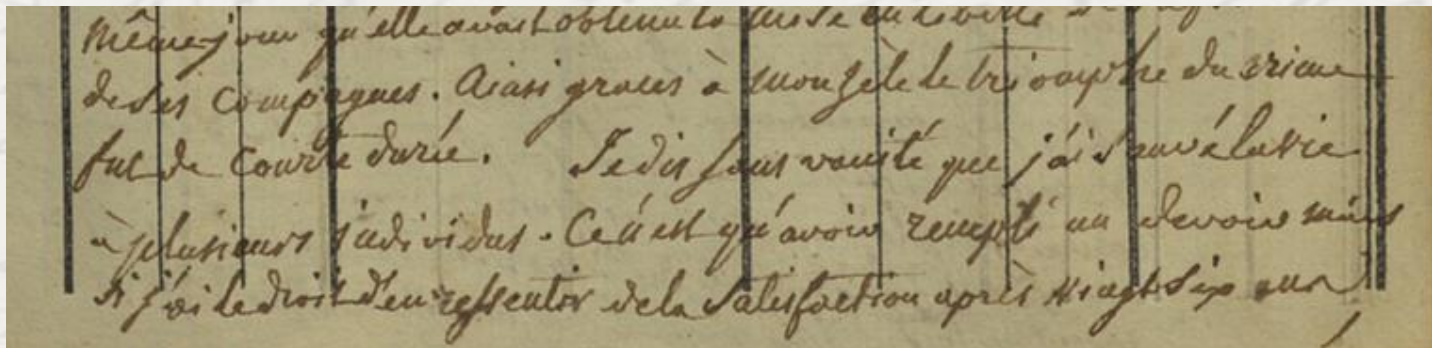 même jour qu'elle avait obtenu la mise en liberté
de ses compagnes. Ainsi graces à mon zèle le triomphe du crime
fut de courte durée. Je dis sans vanité que j'ai sauvé la vie
à plusieurs individus. Ce n'est qu'avoir rempli un devoir mais
si j'ai le droit d'en ressentir de la satisfaction après vingt six ans